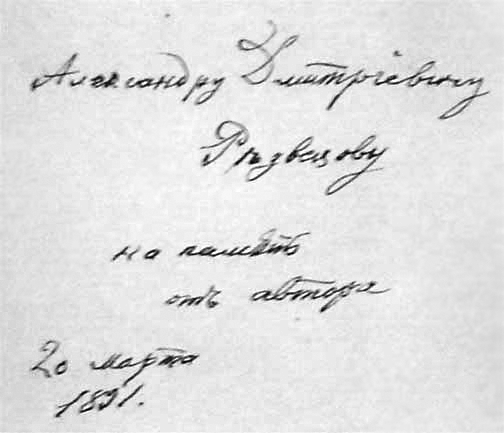 Александру Дмитріевичу
Рѣзвецову
на память
отъ автора
20 марта
1891.